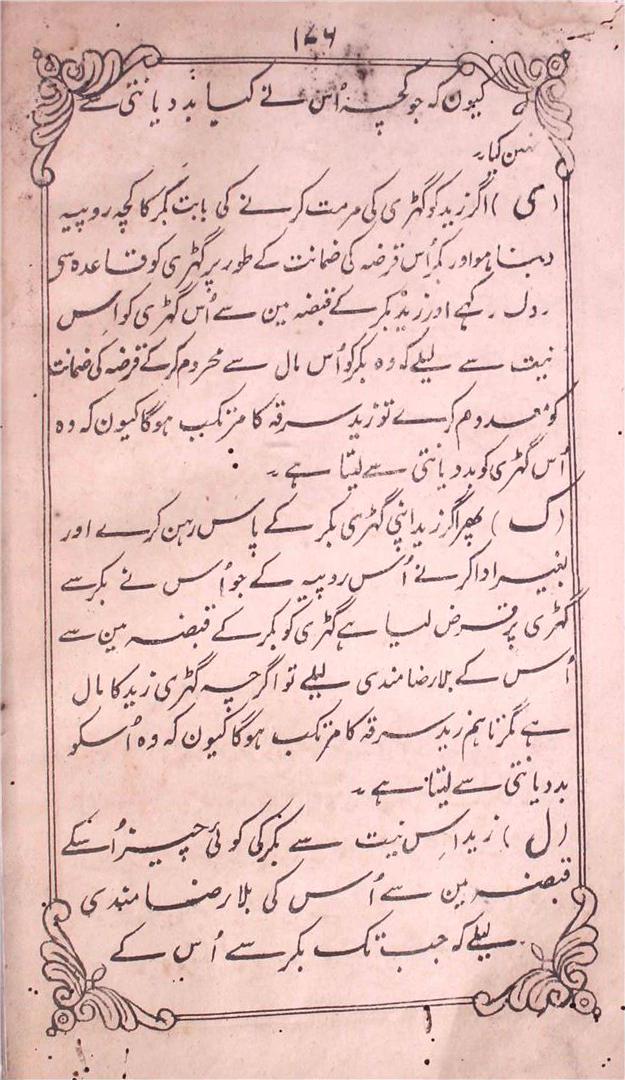 ۱۷۶
کیون کہ جو کچہ اُس نے کیا بد دیانتی سے
نہین کیا۔
(ی) اگر زید کو گھڑی کی مرمت کرنے کی بابت بکر کا کچہ روپیہ
دینا ہو اور بکر اُس قرضہ کی ضمانت کے طور پر گھڑی کو قاعدہ سی
رکہے اور زید بکر کے قبضہ مین سے اُس گھڑی کو اس
نیت سے لیلے کہ وہ بکر کو اُس مال سے محروم کر کے قرضہ کی ضمانت
کو معدوم کرے تو زید سرقہ کا مرتکب ہوگا کیون کہ وہ
اُس گھڑی کو بد دیانتی سے لیتا ہے۔
(ک) پھر اگر زید اپنی گھڑی بکر کے پاس رہن کرے اور
بغیر ادا کرنے اُس روپیہ کے جو اُس نے بکر سے
گھڑی پر قرض لیا ہے گھڑی کو بکر کے قبضہ مین سے
اُس کے بلا رضامندی لیلے تو اگرچہ گھڑی زید کا مال
ہے مگر تاہم زید سرقہ کا مرتکب ہوگا کیون کہ وہ اُسکو
بد دیانتی سے لیتا ہے۔
(ل) زید اس نیت سے بکر کی کوئی چیز اُسکے
قبضہ مین سے اُس کی بلا رضامندی
لیلے کہ جب تک بکر سے اُس کے